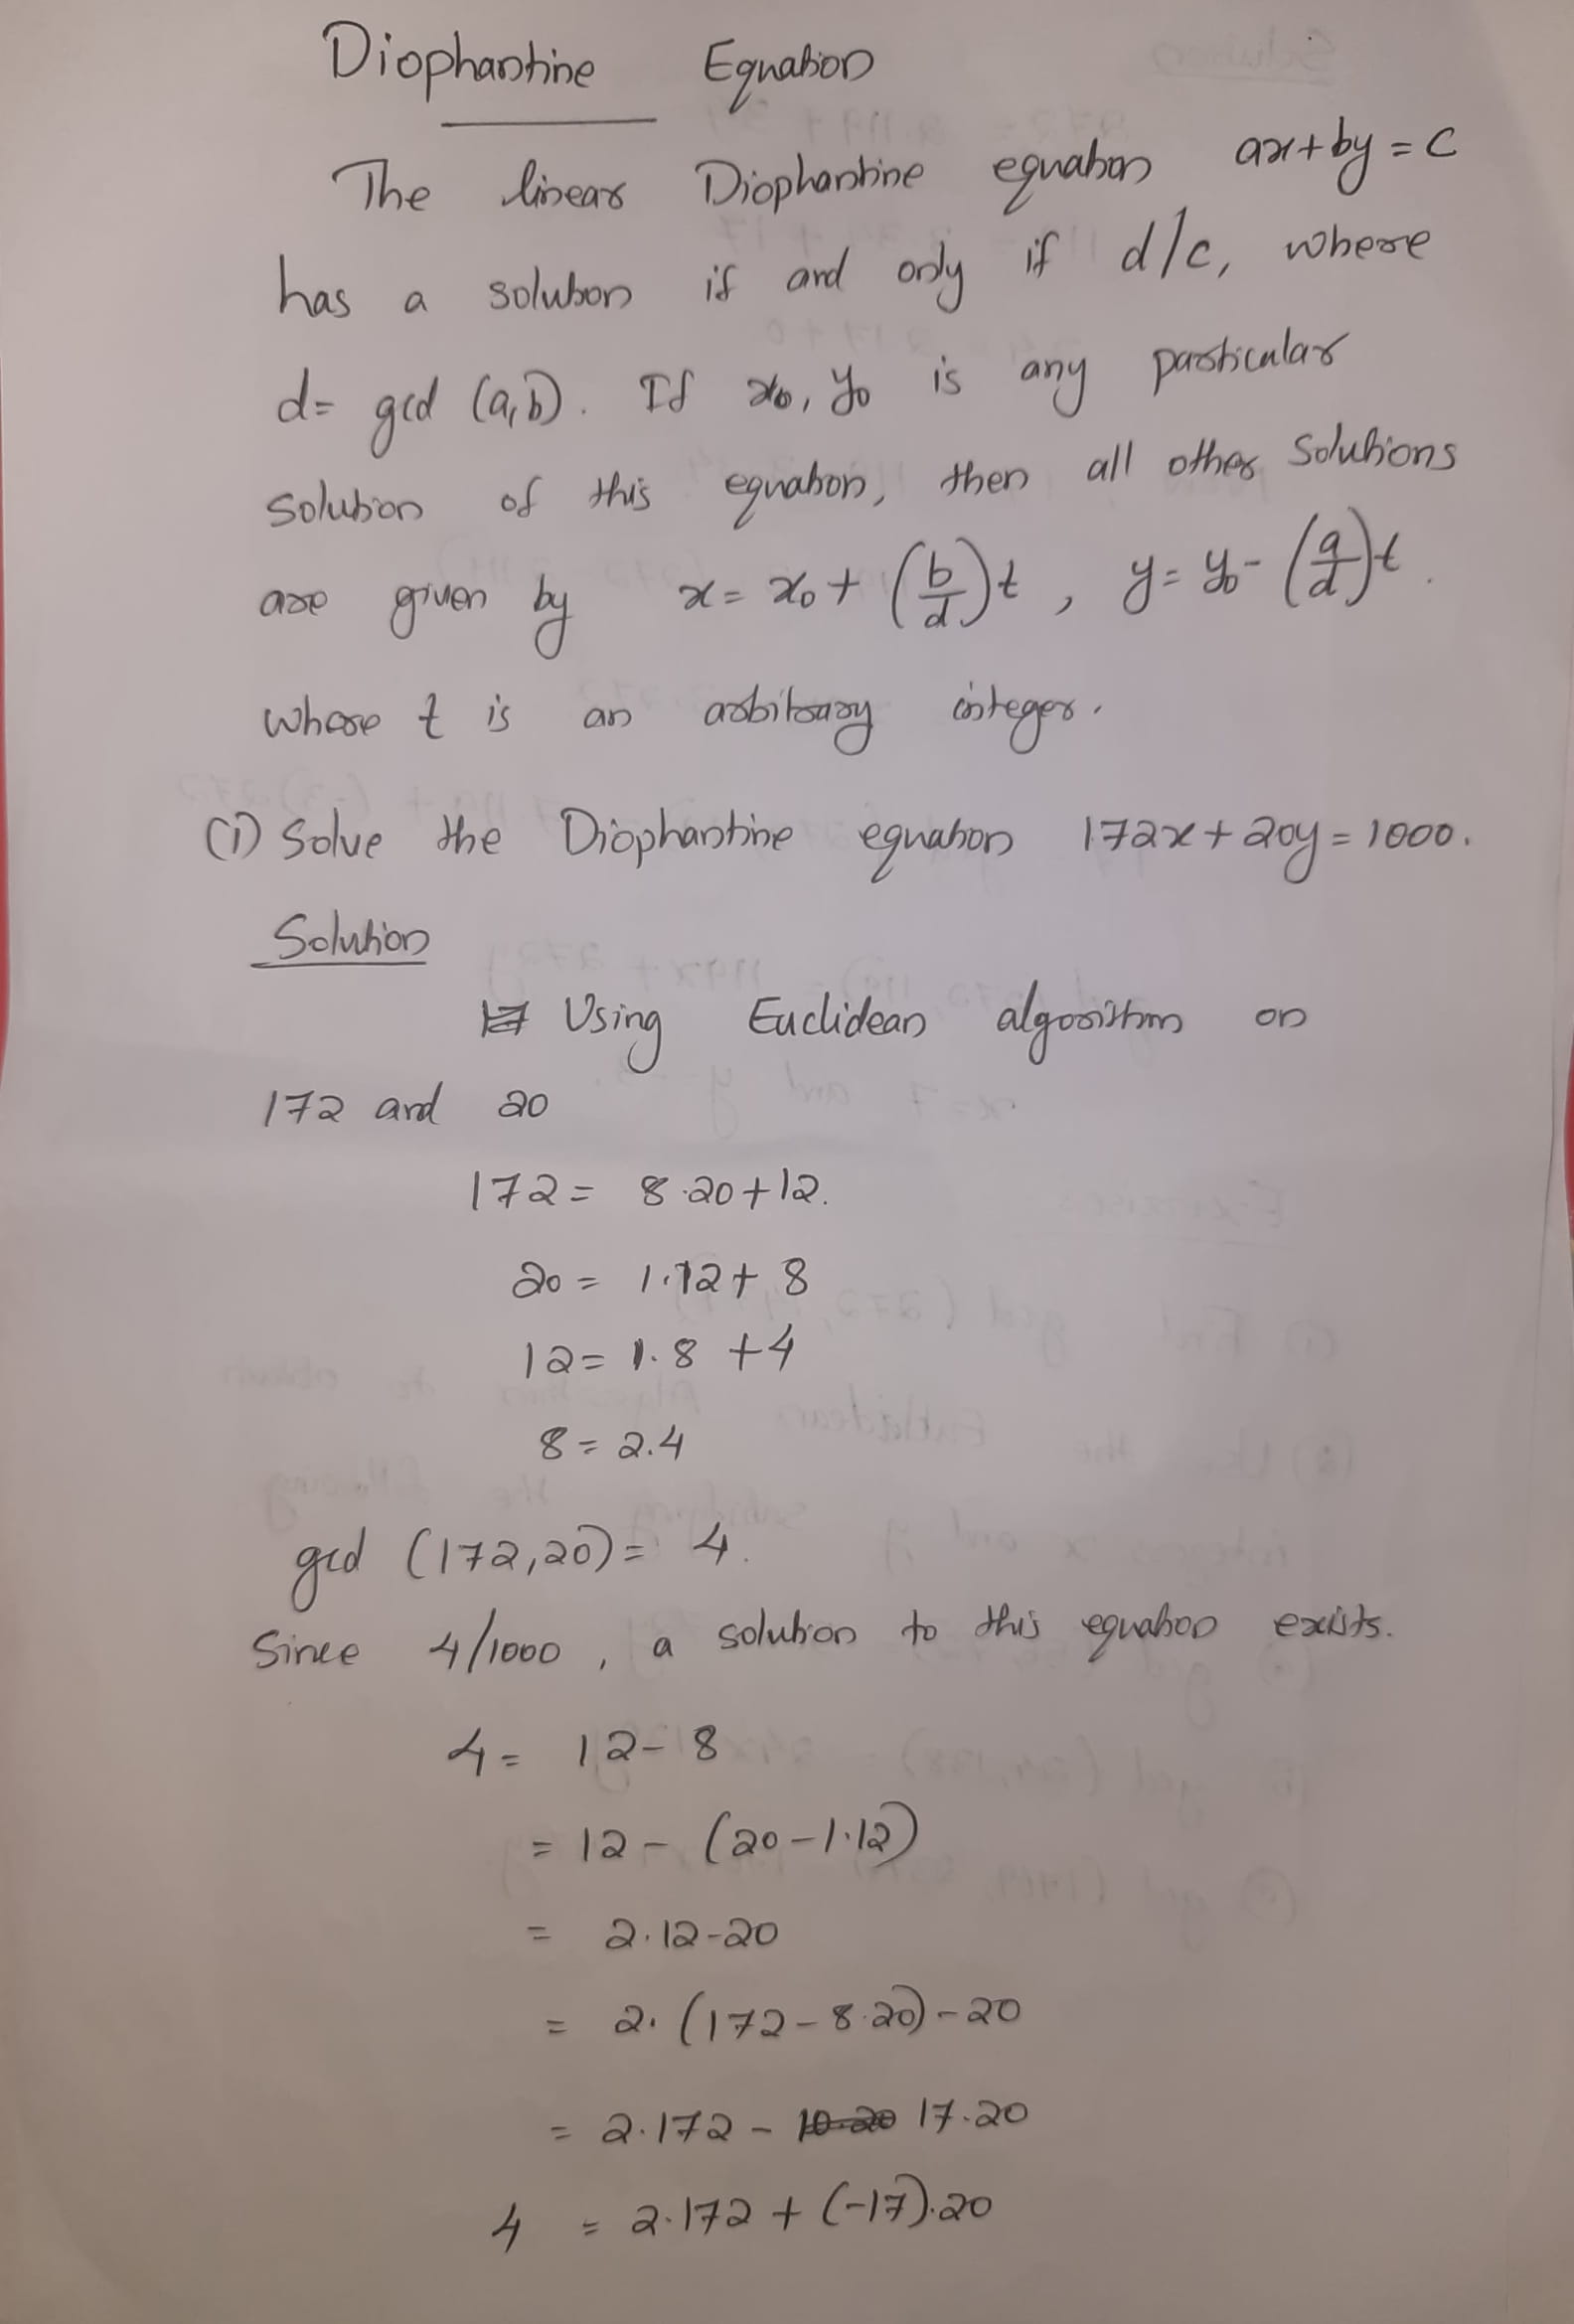 Diophantine Equation
The linear Diophantine equation ax+by=c
has a solution if and only if d/c, where
d= gcd (a,b). If x₀, y₀ is any particular
solution of this equation, then all other solutions
are given by x= x₀+ (b/d)t, y= y₀- (a/d)t.
where t is an arbitrary integer.
(1) Solve the Diophantine equation 172x+20y=1000.
Solution
Using Euclidean algorithm on
172 and 20
172= 8·20+12.
20= 1·12+ 8
12= 1·8 +4
8= 2.4
gcd (172,20)= 4.
Since 4/1000, a solution to this equation exists.
4= 12-8
= 12- (20-1·12)
= 2·12-20
= 2·(172-8·20)-20
= 2·172- 17·20
4 = 2·172+ (-17)·20